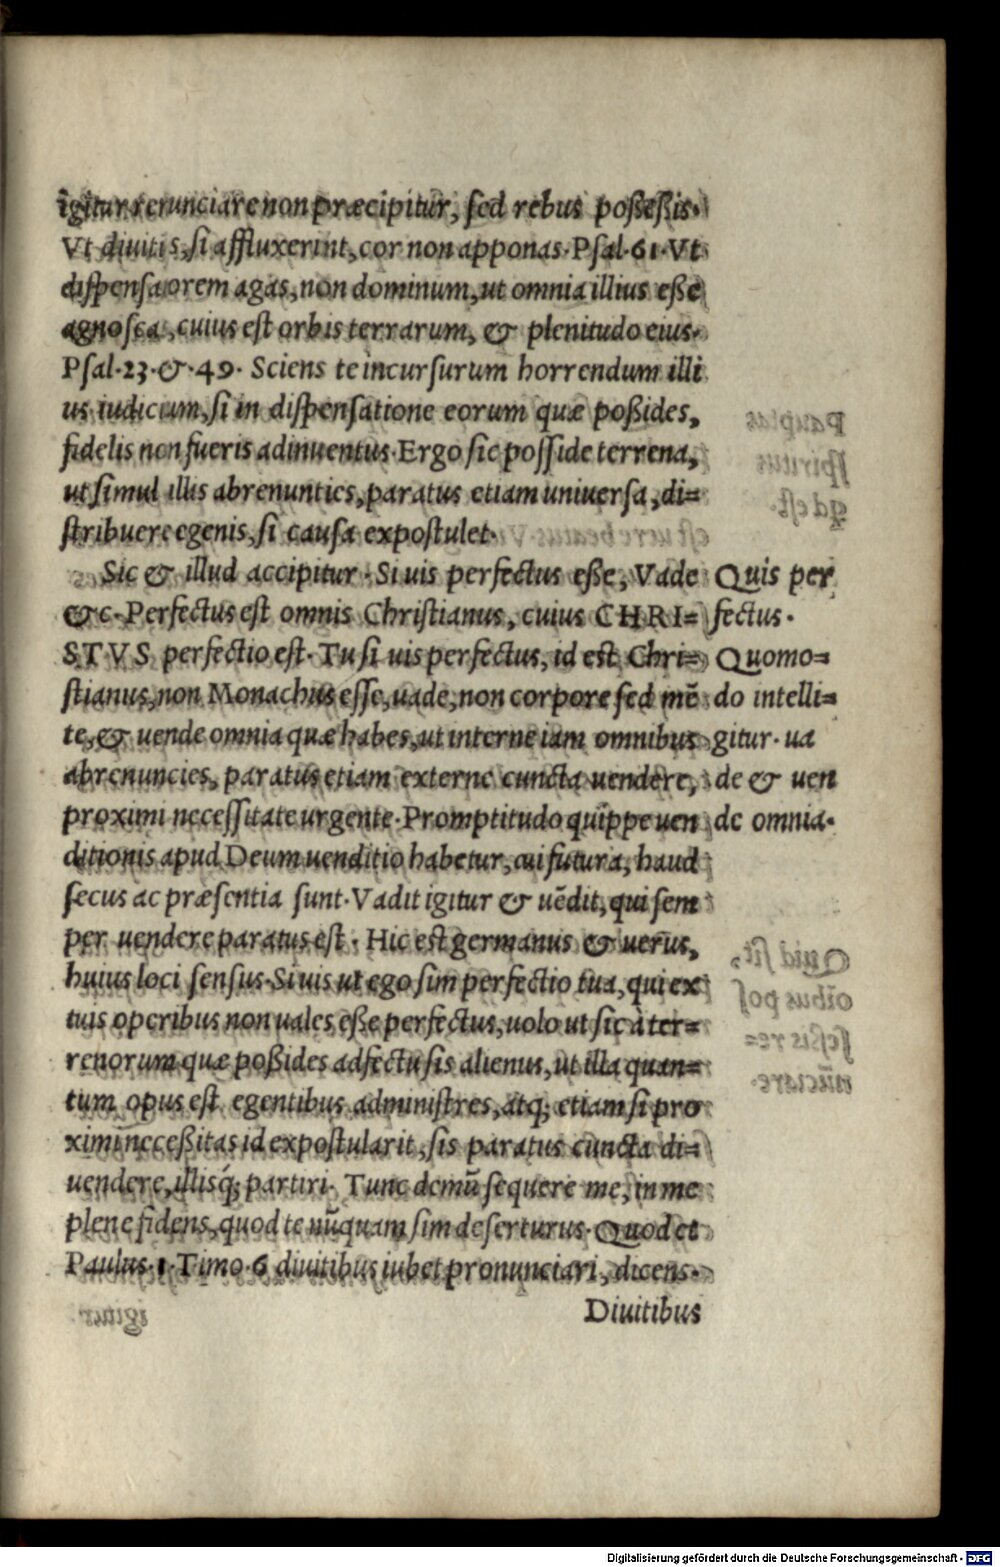 igitur renunciare non præcipitur, sed rebus poßeßis.
Vt diuitis, si affluxerint, cor non apponas. Psal. 61. Vt
dispensaorem agas, non dominum, ut omnia illius eße
agnosca, cuius est orbis terrarum, & plenitudo eius.
Psal. 23. &. 49. Sciens te incursurum horrendum illi
us iudicium, si in dispensatione eorum quæ poßides,
fidelis non fueris adinuentus. Ergo sic posside terrena,
ut simul illis abrenunties, paratus etiam uniuersa, di=
stribuere egenis, si causa expostulet.
Sic & illud accipitur. Si uis perfectus eße, Vade
&c. Perfectus est omnis Christianus, cuius CHRI=
STVS perfectio est. Tu si uis perfectus, id est Chri=
stianus, non Monachus esse, uade, non corpore sed mẽ
te, & uende omnia quæ habes, ut interne iam omnibus
abrenuncies, paratus etiam externe cuncta uendere,
proximi necessitate urgente. Promptitudo quippe uen
ditionis apud Deum uenditio habetur, cui futura, haud
secus ac præsentia sunt. Vadit igitur & uẽdit, qui sem
per uendere paratus est. Hic est germanus & uerus,
huius loci sensus. Si uis ut ego sim perfectio tua, qui ex
tuis operibus non uales eße perfectus, uolo ut sic à ter=
renorum quæ poßides adfectu sis alienus, ut illa quan=
tum opus est egentibus administres, atq; etiam si pro
ximi neceßitas id expostularit, sis paratus cuncta di=
uendere, illisq́; partiri. Tunc demũ sequere me, in me
plene fidens, quod te nũquam sim deserturus. Quod et
Paulus. 1. Timo. 6 diuitibus iubet pronunciari, dicens.
Diuitibus
Quis per
fectus.
Quomo=
do intelli=
gitur. ua
de & uen
de omnia.
Digitalisierung gefördert durch die Deutsche Forschungsgemeinschaft - DFG